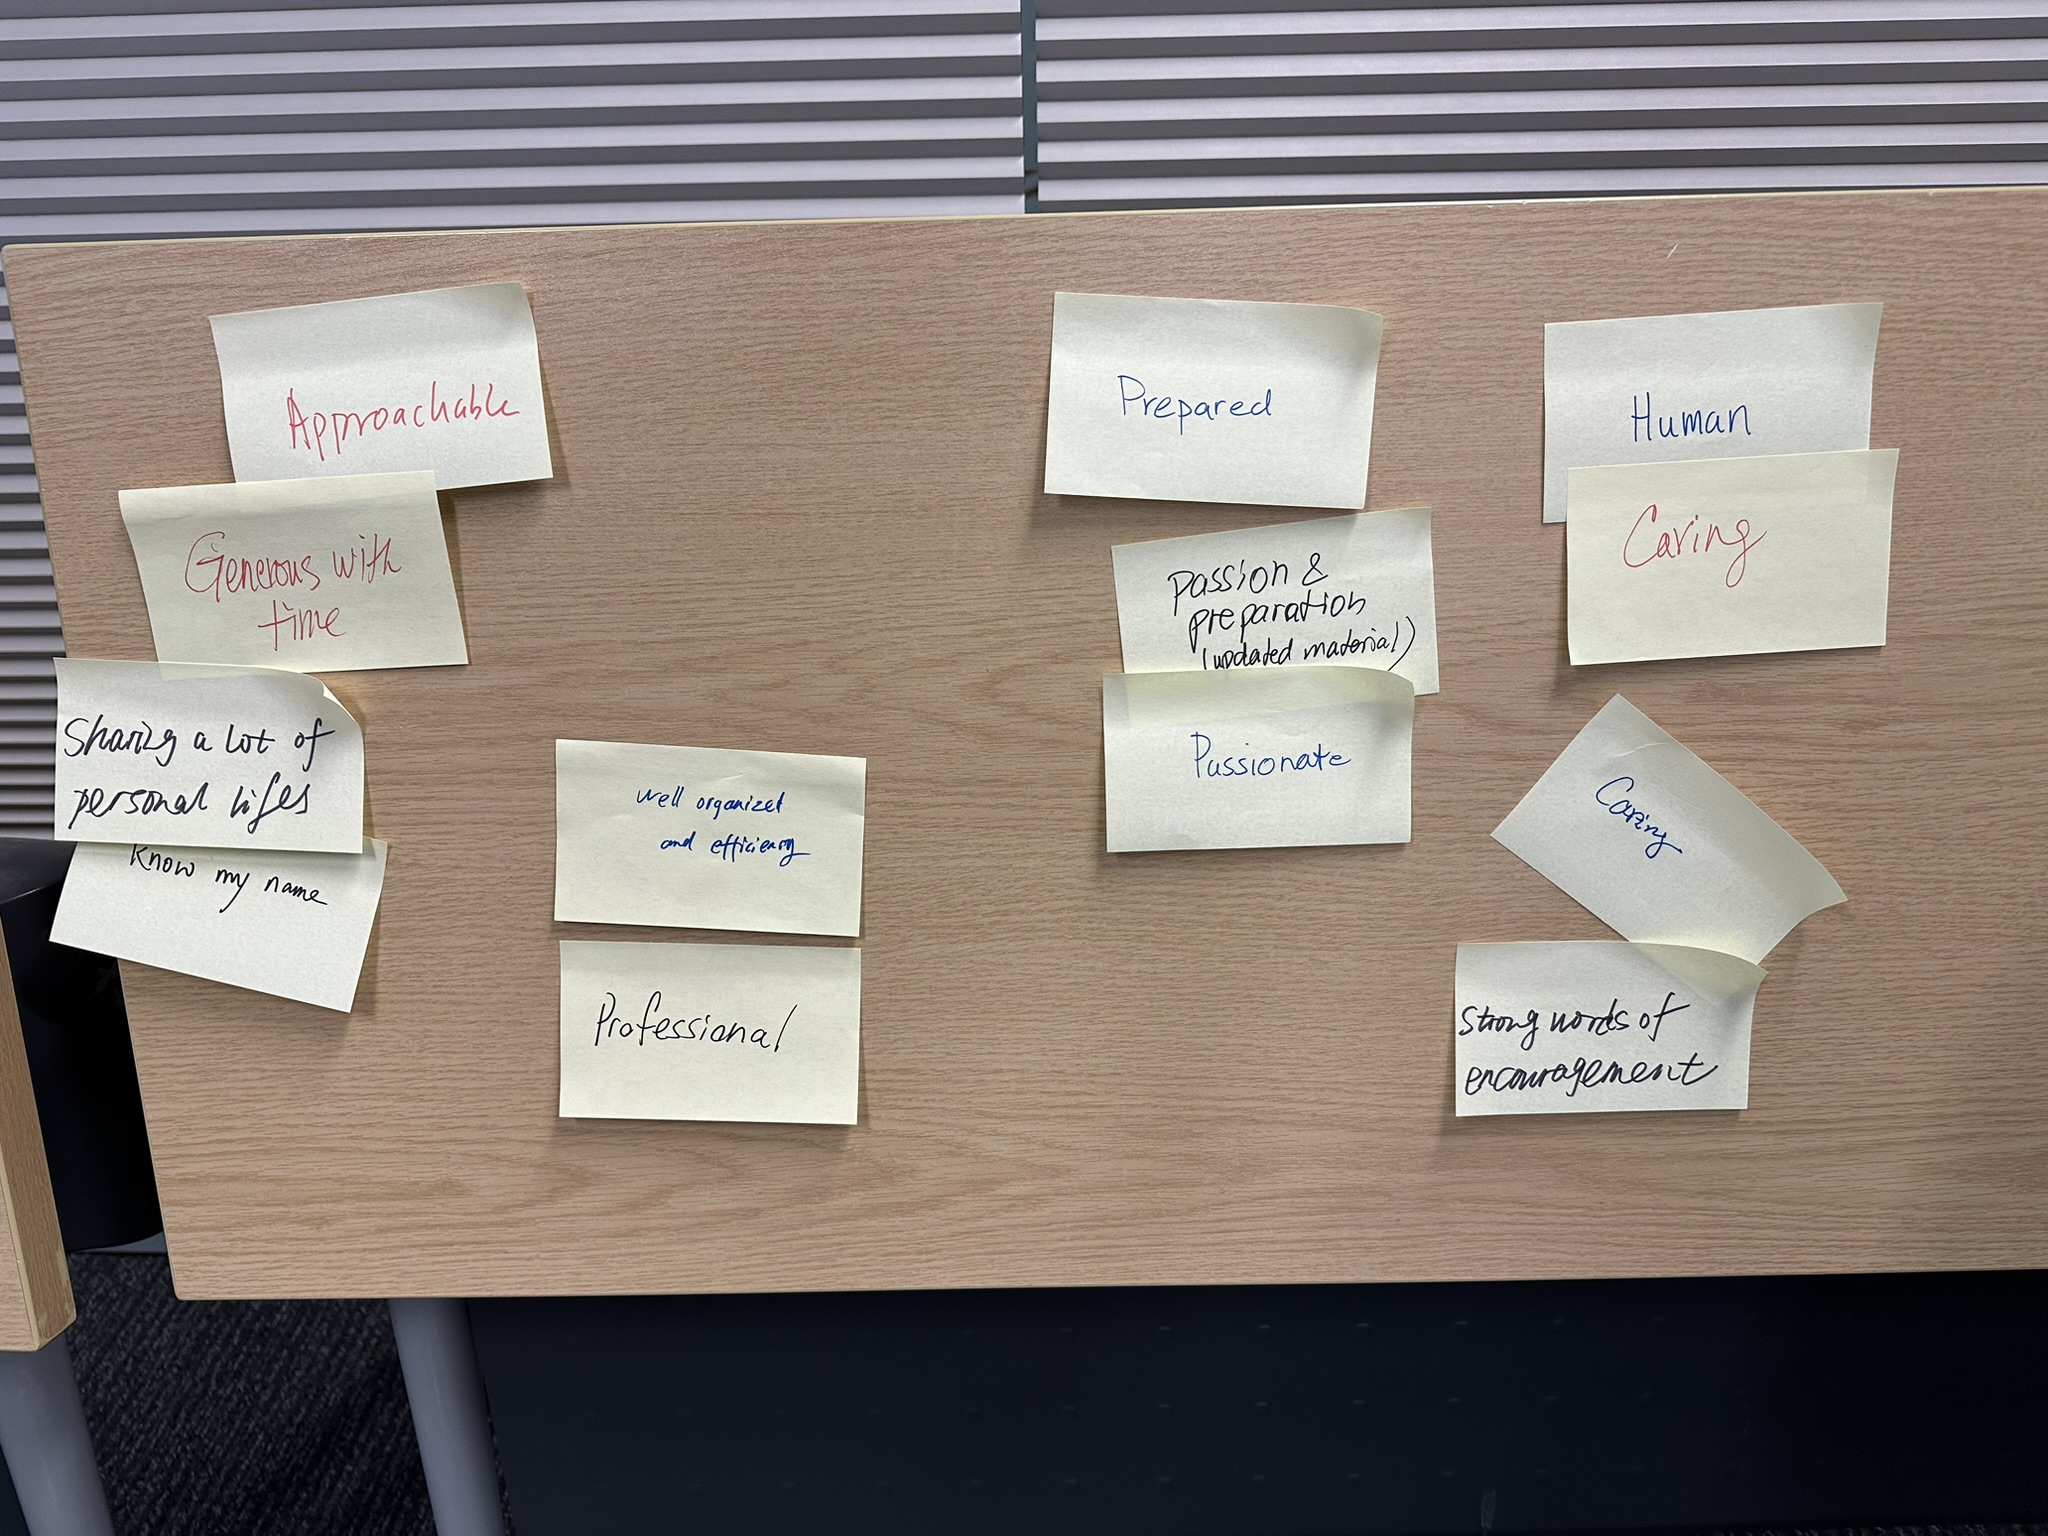 Approachable
Generous with
time
Sharing a lot of
personal lifes
Know my name
well organized
and efficiency
Professional
Prepared
Passion &
preparation
(updated material)
Passionate
Human
Caring
Caring
Strong words of
encouragement